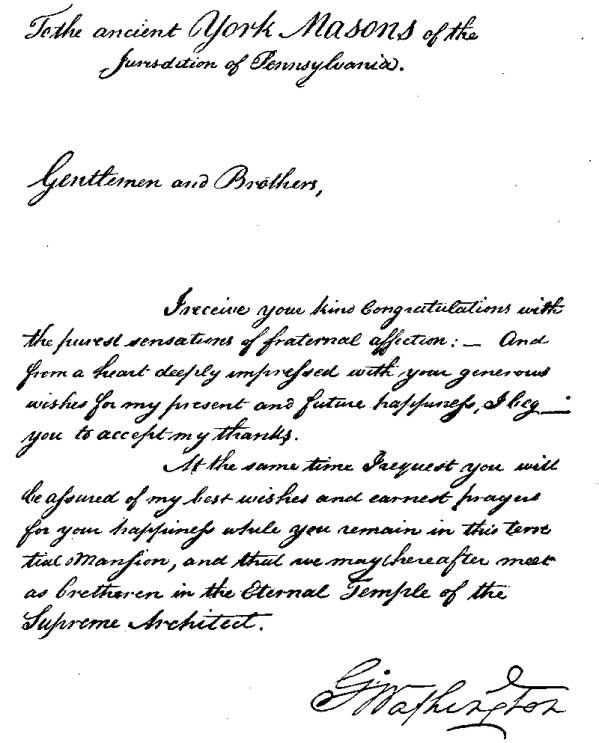 To the ancient York Masons of the
Jurisdiction of Pennsylvania.
Gentlemen and Brothers,
I receive your kind Congratulations with
the purest sensations of fraternal affection: — And
from a heart deeply impressed with your generous
wishes for my present and future happiness, I beg —
you to accept my thanks.
At the same time I request you will
be assured of my best wishes and earnest prayers
for your happiness while you remain in this terres
tial Mansion, and that we may hereafter meet
as bretheren in the Eternal Temple of the
Supreme Architect.
G. Washington